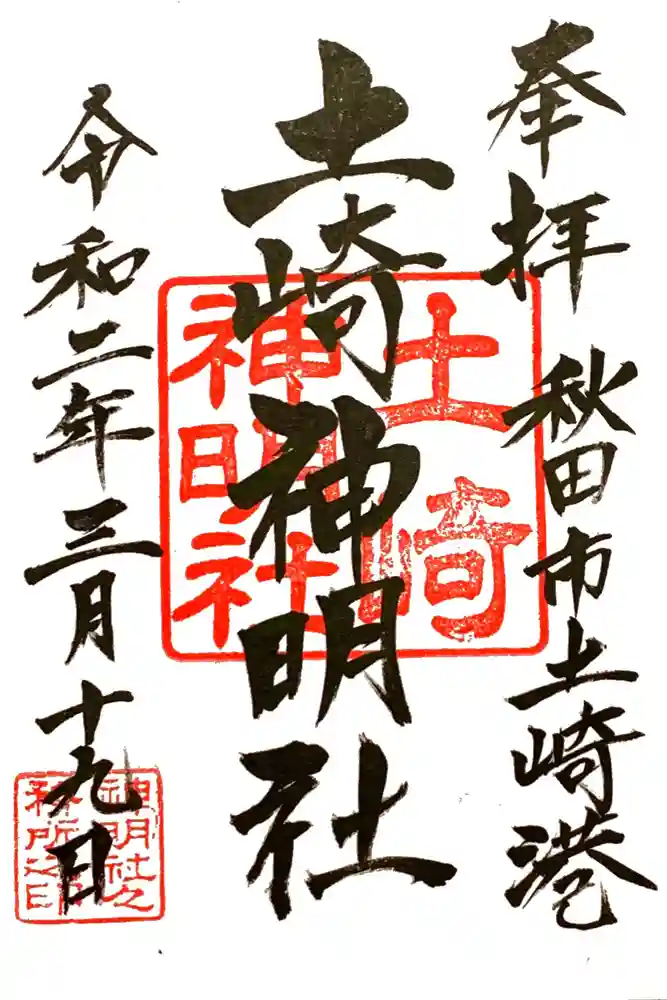 奉拝 秋田市土崎港
土崎神明社
令和二年三月十九日
土崎
神明社
神明社之
務所之印